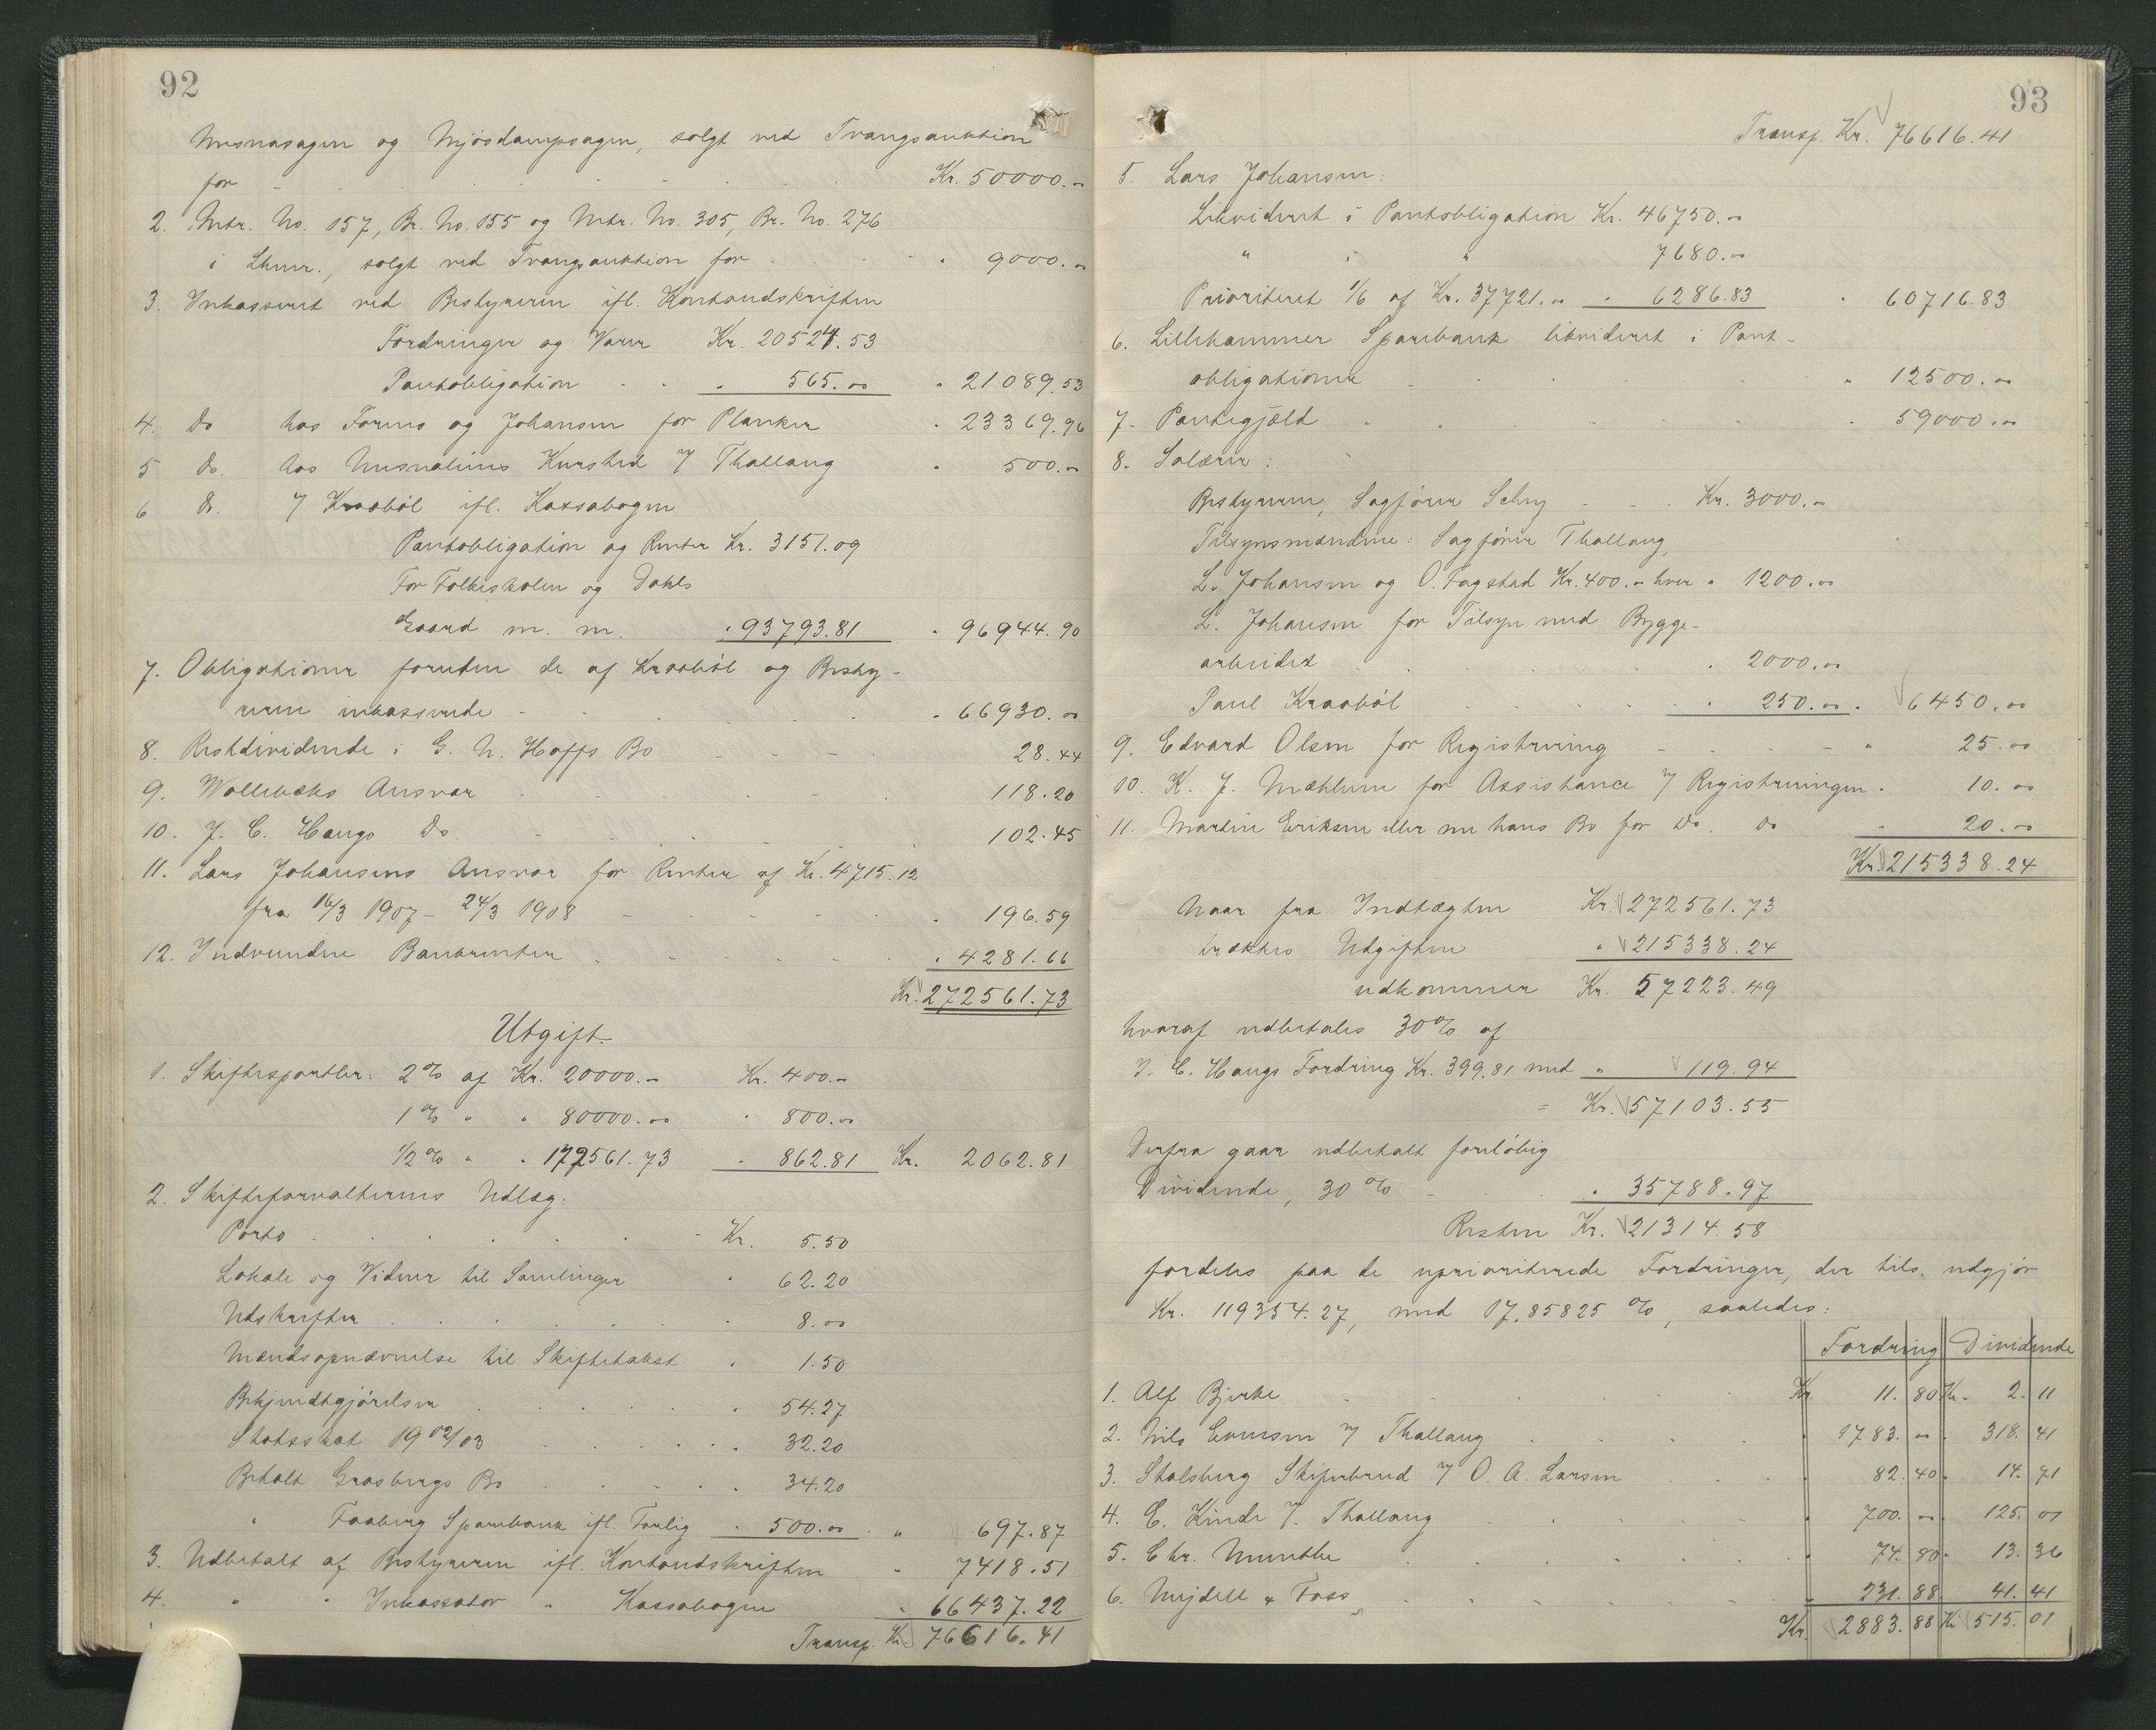 92
Mesnasagen og Mjøsdampsagen, solgt ved Tvangsauktion
for - Kr. 50000.-
2. Mtr. No. 157, Br. No. 155 og Mtr. No. 305, Br. No. 276
i Lhmr., solgt ved Tvangsauktion for " 9000.-
3. Inkasseret ved Bestyreren ifl. Kontandskriften
Fordringer og Varer Kr. 20524.53
Pantobligation " 565.00 " 21089.53
4. Do hos Formo og Johansen for Planker " 23369.96
5 do. hos Mesnaliens Kursted v/ Thallaug " 500.-
6 do. v/ Kraabøl ifl. Kassabogen
Pantobligation og Renter Kr. 3151.09
For Folkeskolen og Dahls
Gaard m. m. " 93793.81 " 96944.90
7. Obligationer foruden de af Kraabøl og Besty-
reren inkasserede - " 66930.00
8. Restdividende i G. N. Hoffs Bo 28.44
9. Wollebæks Ansvar 118.20
10. J. C. Haugs Do. 102.45
11. Lars Johansens Ansvar for Renter af Kr. 4715.12
fra 16/3 1907 - 24/3 1908 " 196.59
12. Indvundne Bankrenter " 4281.66
Kr. 272561.73
Utgift.
1. Skiftesportler: 2% af Kr. 20000.- Kr. 400.-
1% " " 80000.00 " 800.00
1/2% " " 172561.73 " 862.81 Kr. 2062.81
2. Skifteforvalterens Udlæg:
Porto Kr. 5.50
Lokale og Vidner til Samlinger " 62.20
Udskrifter 8.00
Mændsopnævnelse til Skiftetakst " 1.50
Bekjendtgjørelser " 54.27
Statsskat 1902/03 " 32.20
Betalt Grosbergs Bo " 34.20
" Faaberg Sparebank ifl. Forlig " 500.00 " 697.87
3. Udbetalt af Bestyreren ifl. Kontandskriften " 7418.51
4. " " Inkassator " Kassabogen " 66437.22
Transp. Kr. 76616.41
93
Transp. Kr. 76616.41
5. Lars Johansen:
Likvideret i Pantobligation Kr. 46750.00
" i " 7680.00
Prioriteret 1/6 af Kr. 37721.00 " 6286.83 " 60716.83
6. Lillehammer Sparebank likvideret i Pant-
obligationer " 12500.00
7. Pantegjæld " 59000.00
8. Salærer:
Bestyreren, Sagfører Selny Kr. 3000.-
Tilsynsmændene: Sagfører Thallaug,
L. Johansen og O. Fagstad Kr. 400.- hver " 1200.00
L. Johansen for Tilsyn med Bygge-
arbeidet " 2000.00
Paul Kraabøl " 250.00 " 6450.00
9. Edvard Olsen for Registrering " 25.00
10. K. J. Mæhlum for Assistance v/ Registreringen " 10.00
11. Martin Eriksen eller nu hans Bo for Do. Do " 20.00
Kr. 215338.24
Naar fra Indtægten Kr. 272561.73
trækkes Udgiften " 215338.24
udkommer Kr. 57223.49
hvoraf udbetales 30% af
J. C. Haugs Fordring Kr. 399.81 med " 119.94
= Kr. 57103.55
Derfra gaar udbetalt foreløbig
Dividende, 30% " 35788.97
Resten Kr. 21314.58
fordeles paa de uprioriterede Fordringer, der tils. udgjør
Kr. 119354.27, med 17,85825 %, saaledes:
Fordring Dividende
1. Alf Bjerke Kr. 11.80 Kr. 2.11
2. Nils Evensen v/ Thallaug " 1783.00 " 318.41
3. Stalsberg Skiferbrud v/ O. A. Larsen " 82.40 " 14.71
4. E. Kinde v. Thallaug " 700.00 " 125.01
5. Chr. Munthe " 74.80 " 13.36
6. Mejdell & Foss " 231.88 41.41
Kr. 2883.88 Kr 515.01